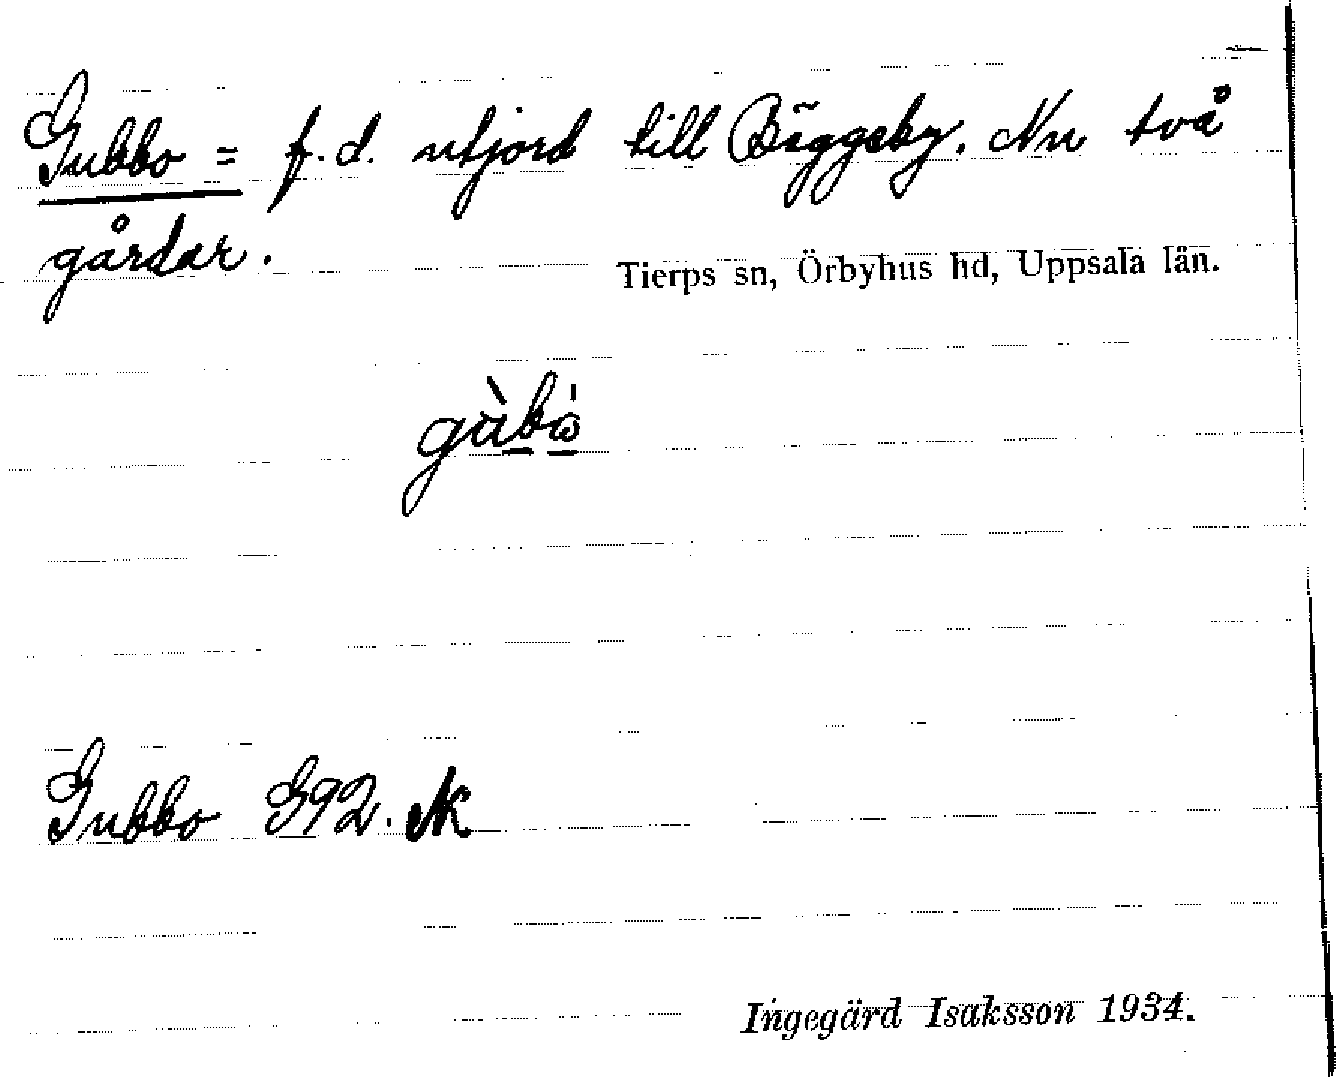 Gubbo = f.d. utjord till Bäggeby. Nu två
gårdar.
Tierps sn, Örbyhus hd, Uppsala län.
Gubbo G92. K
Ingegärd Isaksson 1934.